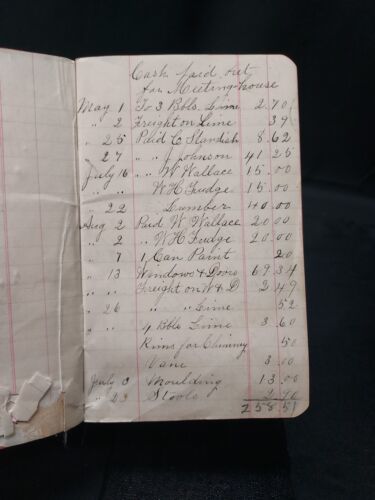 Cash paid out
for Meetinghouse
May 1 To 3 Bbls. Lime 2.70
" 2 Freight on Lime 39
" 25 Paid C Standish 8.62
" 27 " " J Johnson 41 25
July 16 " " W Wallace 15.00
" " W H Fudge 15.00
" 22 Lumber 40.00
Aug 2 Paid W Wallace 20.00
" 2 " " W H Fudge 20.00
" 7 1 Can Paint 20
" 13 Windows & Doors 69.34
" " Freight on W & D 2 49
" 26 " " Lime 52
" " 4 Bbls Lime 3.60
Rims for Chimney 50
Vane 3.00
July Moulding 13.00
" 23 Stools 2.90
258.51